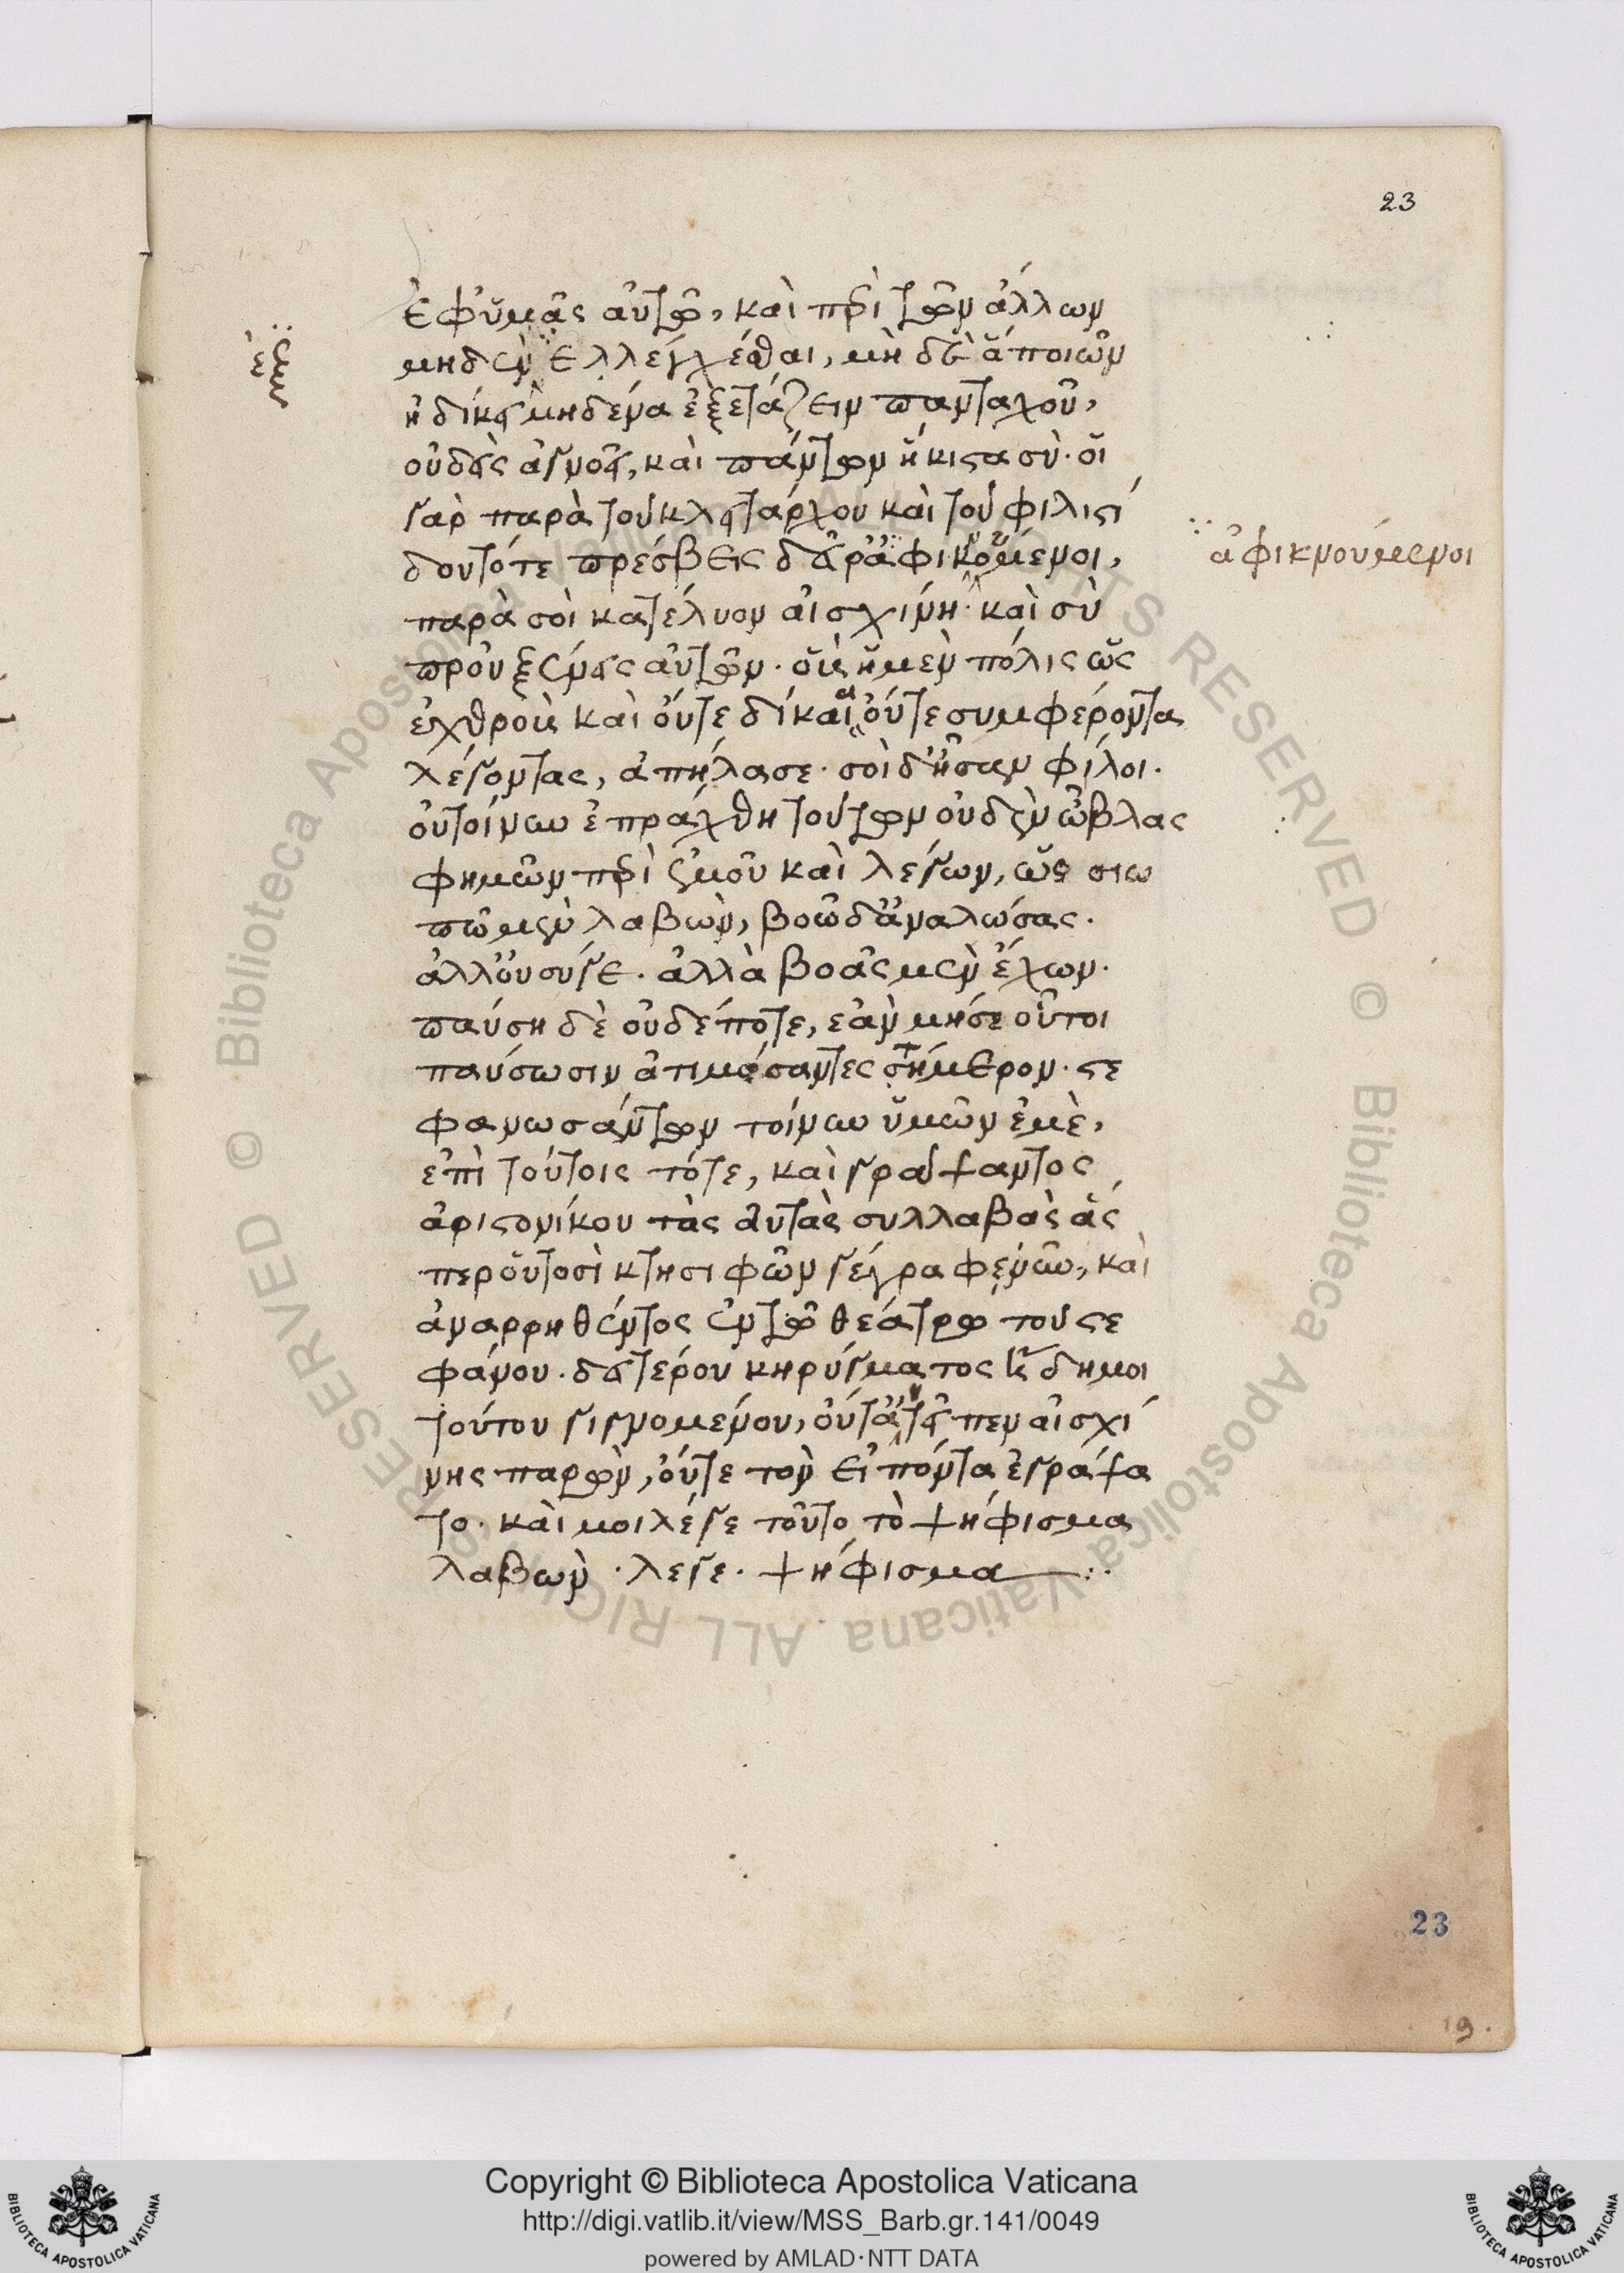 23
ἐφ' ὑμᾶς αὐτῶ, καὶ περὶ τῶν ἄλλων
μηδὲν ἐλλέγχεσθαι, μηδ' ἃ ποιῶν
ἀδικεῖ μηδένα ἐξετάζειν πανταχοῦ,
οὐδεὶς ἀγνοεῖ, καὶ πάντων ἥκιστα σύ· οἱ
γὰρ παρὰ τοῦ κλειτάρχου καὶ τοῦ φιλιστί
δου τότε πρέσβεις δεῦρ' ἀφικομένοι,
ἀφικνούμενοι
παρὰ σοὶ κατέλυον αἰσχίνη· καὶ σὺ
προὐξένεις αὐτῶν· οὓς ἡ μὲν πόλις ὡς
ἐχθροὺς καὶ οὔτε δίκαια οὔτε συμφέροντα
λέγοντας, ἀπήλασε· σοὶ δ' ἦσαν φίλοι·
οὐ τοίνυν ἐπράχθη τούτων οὐδὲν ὦ βλας
φημῶν περὶ ἐμοῦ καὶ λέγων, ὡς σιω
πῶ μὲν λαβὼν, βοῶ δ' ἀναλώσας·
ἀλλ' οὐ σύ γε· ἀλλὰ βοᾶς μὲν ἔχων·
παύση δὲ οὐδέποτε, ἐὰν μή σε οὗτοι
παύσωσιν ἀτιμώσαντες τήμερον· στε
φανωσάντων τοίνυν ὑμῶν ἐμὲ,
ἐπὶ τούτοις τότε, καὶ γράψαντος
ἀριστονίκου τὰς αὐτὰς συλλαβὰς ἅς
περ οὑτοσὶ κτησιφῶν γέγραφε νῦν, καὶ
ἀναρρηθέντος ἐν τῶ θεάτρω τοῦ στε
φάνου· δευτέρου κηρύγματος ἤδη μοι
τούτου γιγνομένου, οὔτ' ἀντεῖπεν αἰσχί
νης παρὼν, οὔτε τὸν εἰπόντα ἐγράψα
το· καί μοι λέγε τοῦτο τὸ ψήφισμα
λαβὼν· λέγε· ψήφισμα
23
19.
Copyright © Biblioteca Apostolica Vaticana
http://digi.vatlib.it/view/MSS_Barb.gr.141/0049
powered by AMLAD·NTT DATA